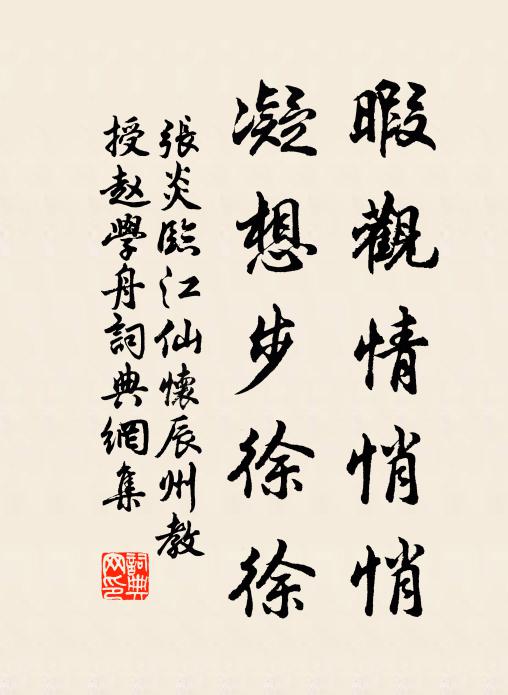 暇觀情悄悄
凝想步徐徐
張炎臨江仙懷辰州教
授趙學舟詞典網集
詞典网印